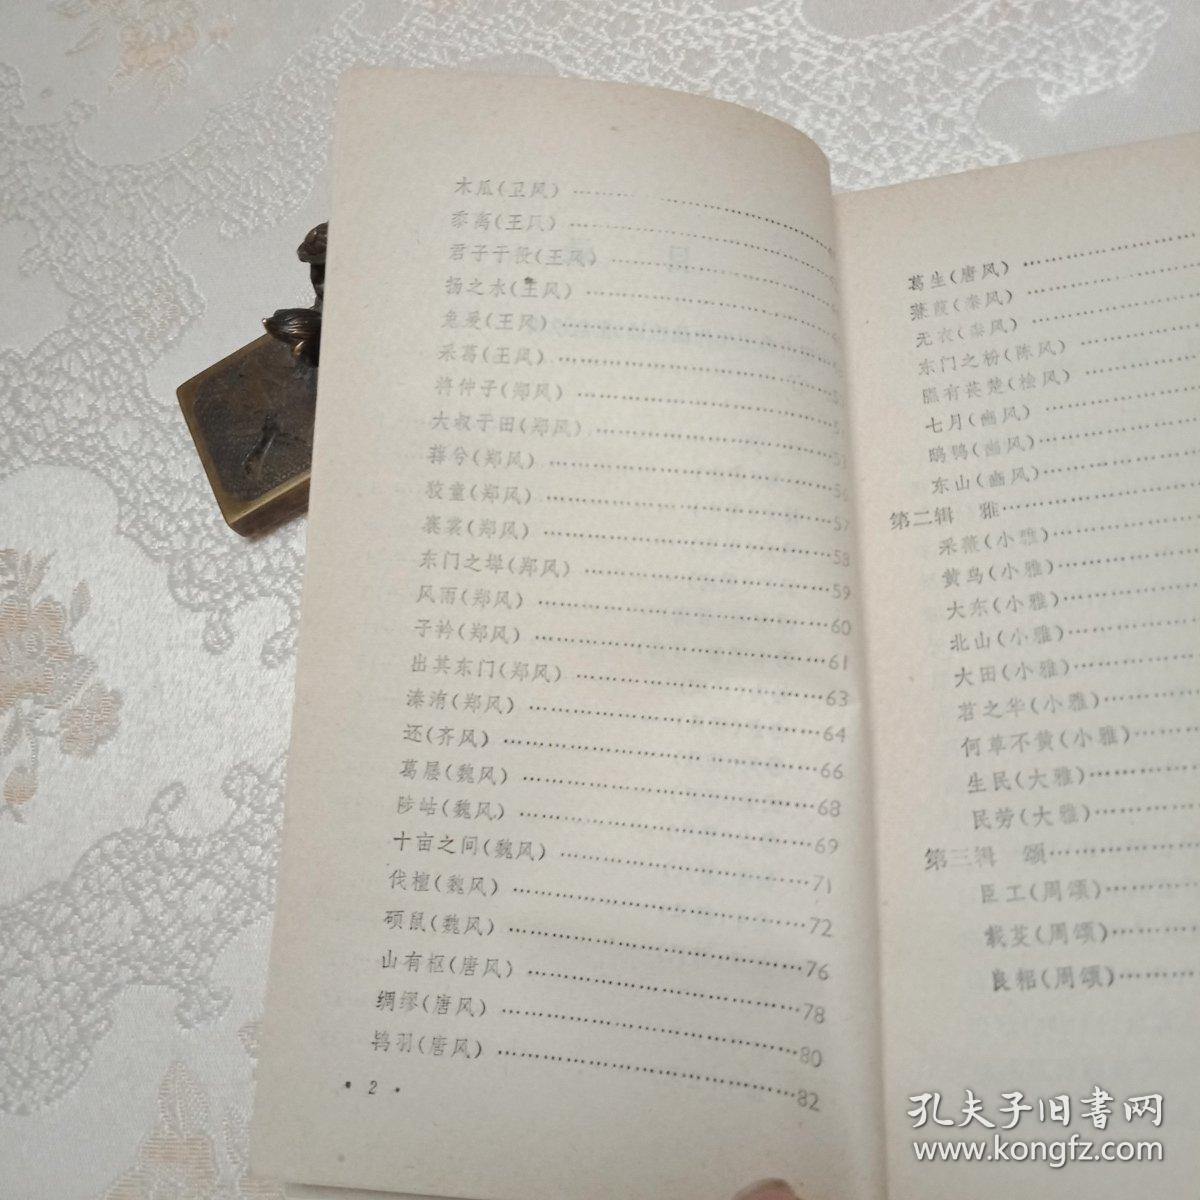 木瓜(卫风)
黍离(王风)
君子于役(王风)
扬之水(王风)
兔爰(王风)
采葛(王风)
将仲子(郑风)
大叔于田(郑风)
萚兮(郑风)……56
狡童(郑风)……57
褰裳(郑风)……58
东门之墠(郑风)……59
风雨(郑风)……60
子衿(郑风)……61
出其东门(郑风)……63
溱洧(郑风)……64
还(齐风)……66
葛屦(魏风)……68
陟岵(魏风)……69
十亩之间(魏风)……71
伐檀(魏风)……72
硕鼠(魏风)……76
山有枢(唐风)……78
绸缪(唐风)……80
鸨羽(唐风)……82
· 2 ·
葛生(唐风)
蒹葭(秦风)
无衣(秦风)
东门之枌(陈风)
隰有苌楚(桧风)
七月(豳风)
鸱鸮(豳风)
东山(豳风)
第二辑 雅
采薇(小雅)
黄鸟(小雅)
大东(小雅)
北山(小雅)
大田(小雅)
苕之华(小雅)
何草不黄(小雅)
生民(大雅)
民劳(大雅)
第三辑 颂
臣工(周颂)
载芟(周颂)
良耜(周颂)
孔夫子旧书网
www.kongfz.com